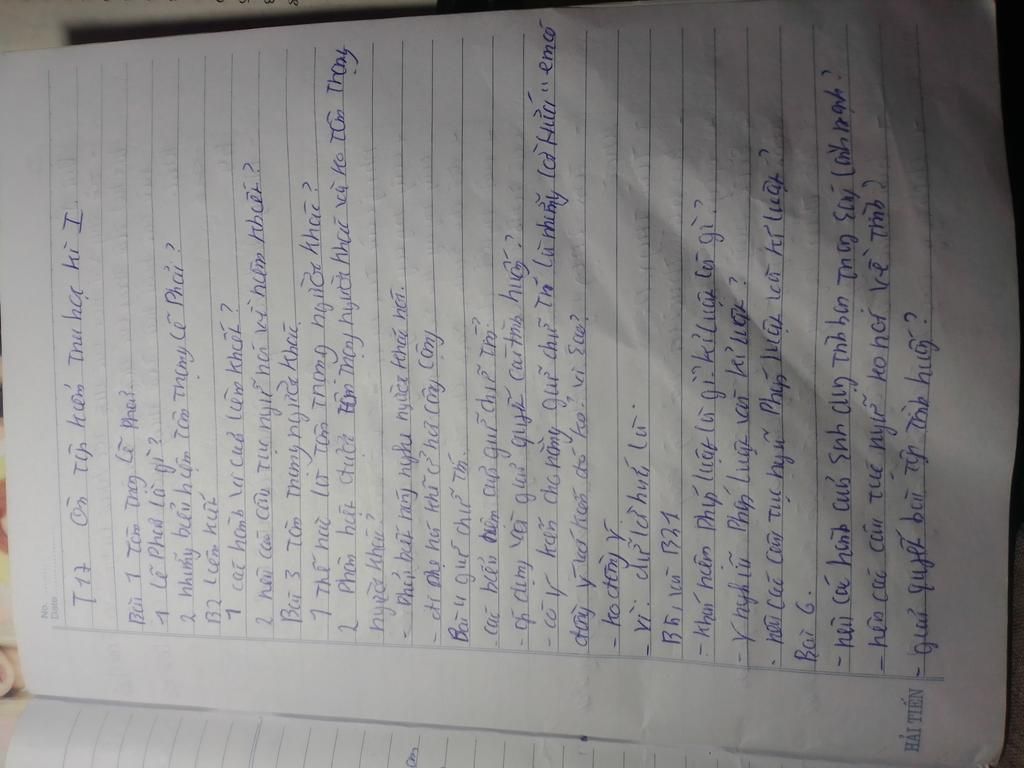 No.
Date
T17 Ôn tập kiểm tra học kì I
Bài 1 Tôn trọng lẽ phải.
1 Lẽ phải là gì?
2 những biểu hiện tôn trọng lẽ phải?
B2 Liêm khiết
1 các hành vi của liêm khiết?
2 nêu các câu tục ngữ nói về liêm khiết?
Bài 3 Tôn trọng người khác
1 Thế nào là tôn trọng người khác?
2 Phân biệt tôn trọng người khác và ko tôn trọng
người khác?
- Phải biết lắng nghe người khác nói.
- đi nhẹ nói khẽ ở nơi công cộng
Bài 4 giữ chữ tín.
- các biểu hiện của giữ chữ tín?
- áp dụng và giải quyết các tình huống?
- có ý kiến cho rằng giữ chữ tín là những lời hứa .. em có
đồng ý với ý kiến đó ko? vì sao?
- ko đồng ý
- Vì: chỉ lời hứa là
B5, và B21
- khái niệm pháp luật là gì? kỉ luật là gì?
- Ý nghĩa pháp luật và kỉ luật?
- nêu các câu tục ngữ pháp luật và kỉ luật?
Bài 6.
- nêu các
- nêu các câu tục ngữ nói về tình
- giải quyết bài tập tình huống?
HẢI TIẾN